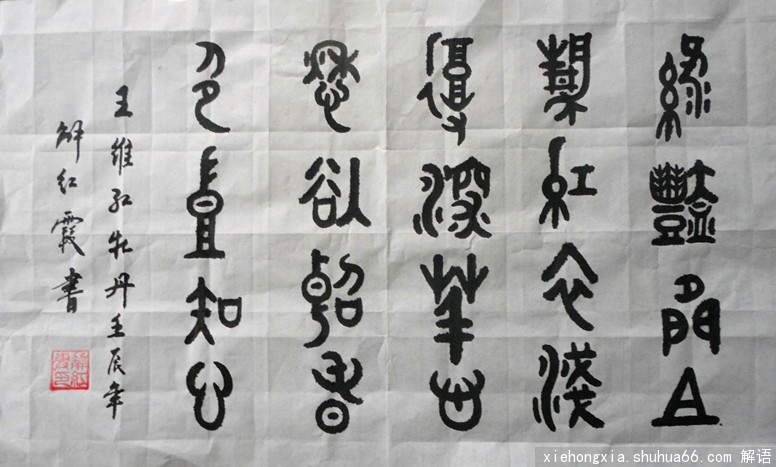 綠艷閒且
靜紅衣淺
復深華心
愁欲斷春
色豈知心
王維红牡丹壬辰年
解红霞書
xiehongxia.shuhua66.com 解语